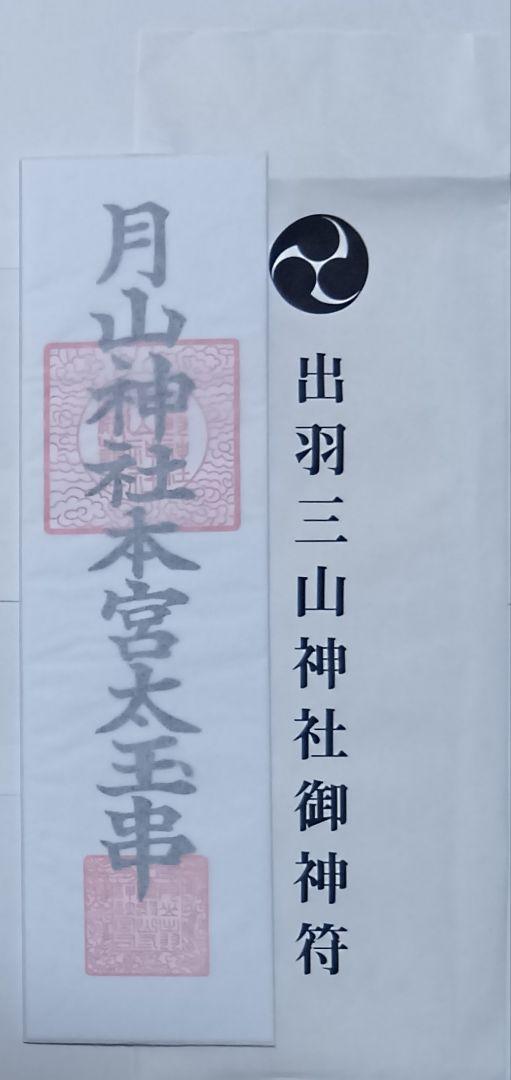 出羽三山神社御神符
月山神社本宮太玉串